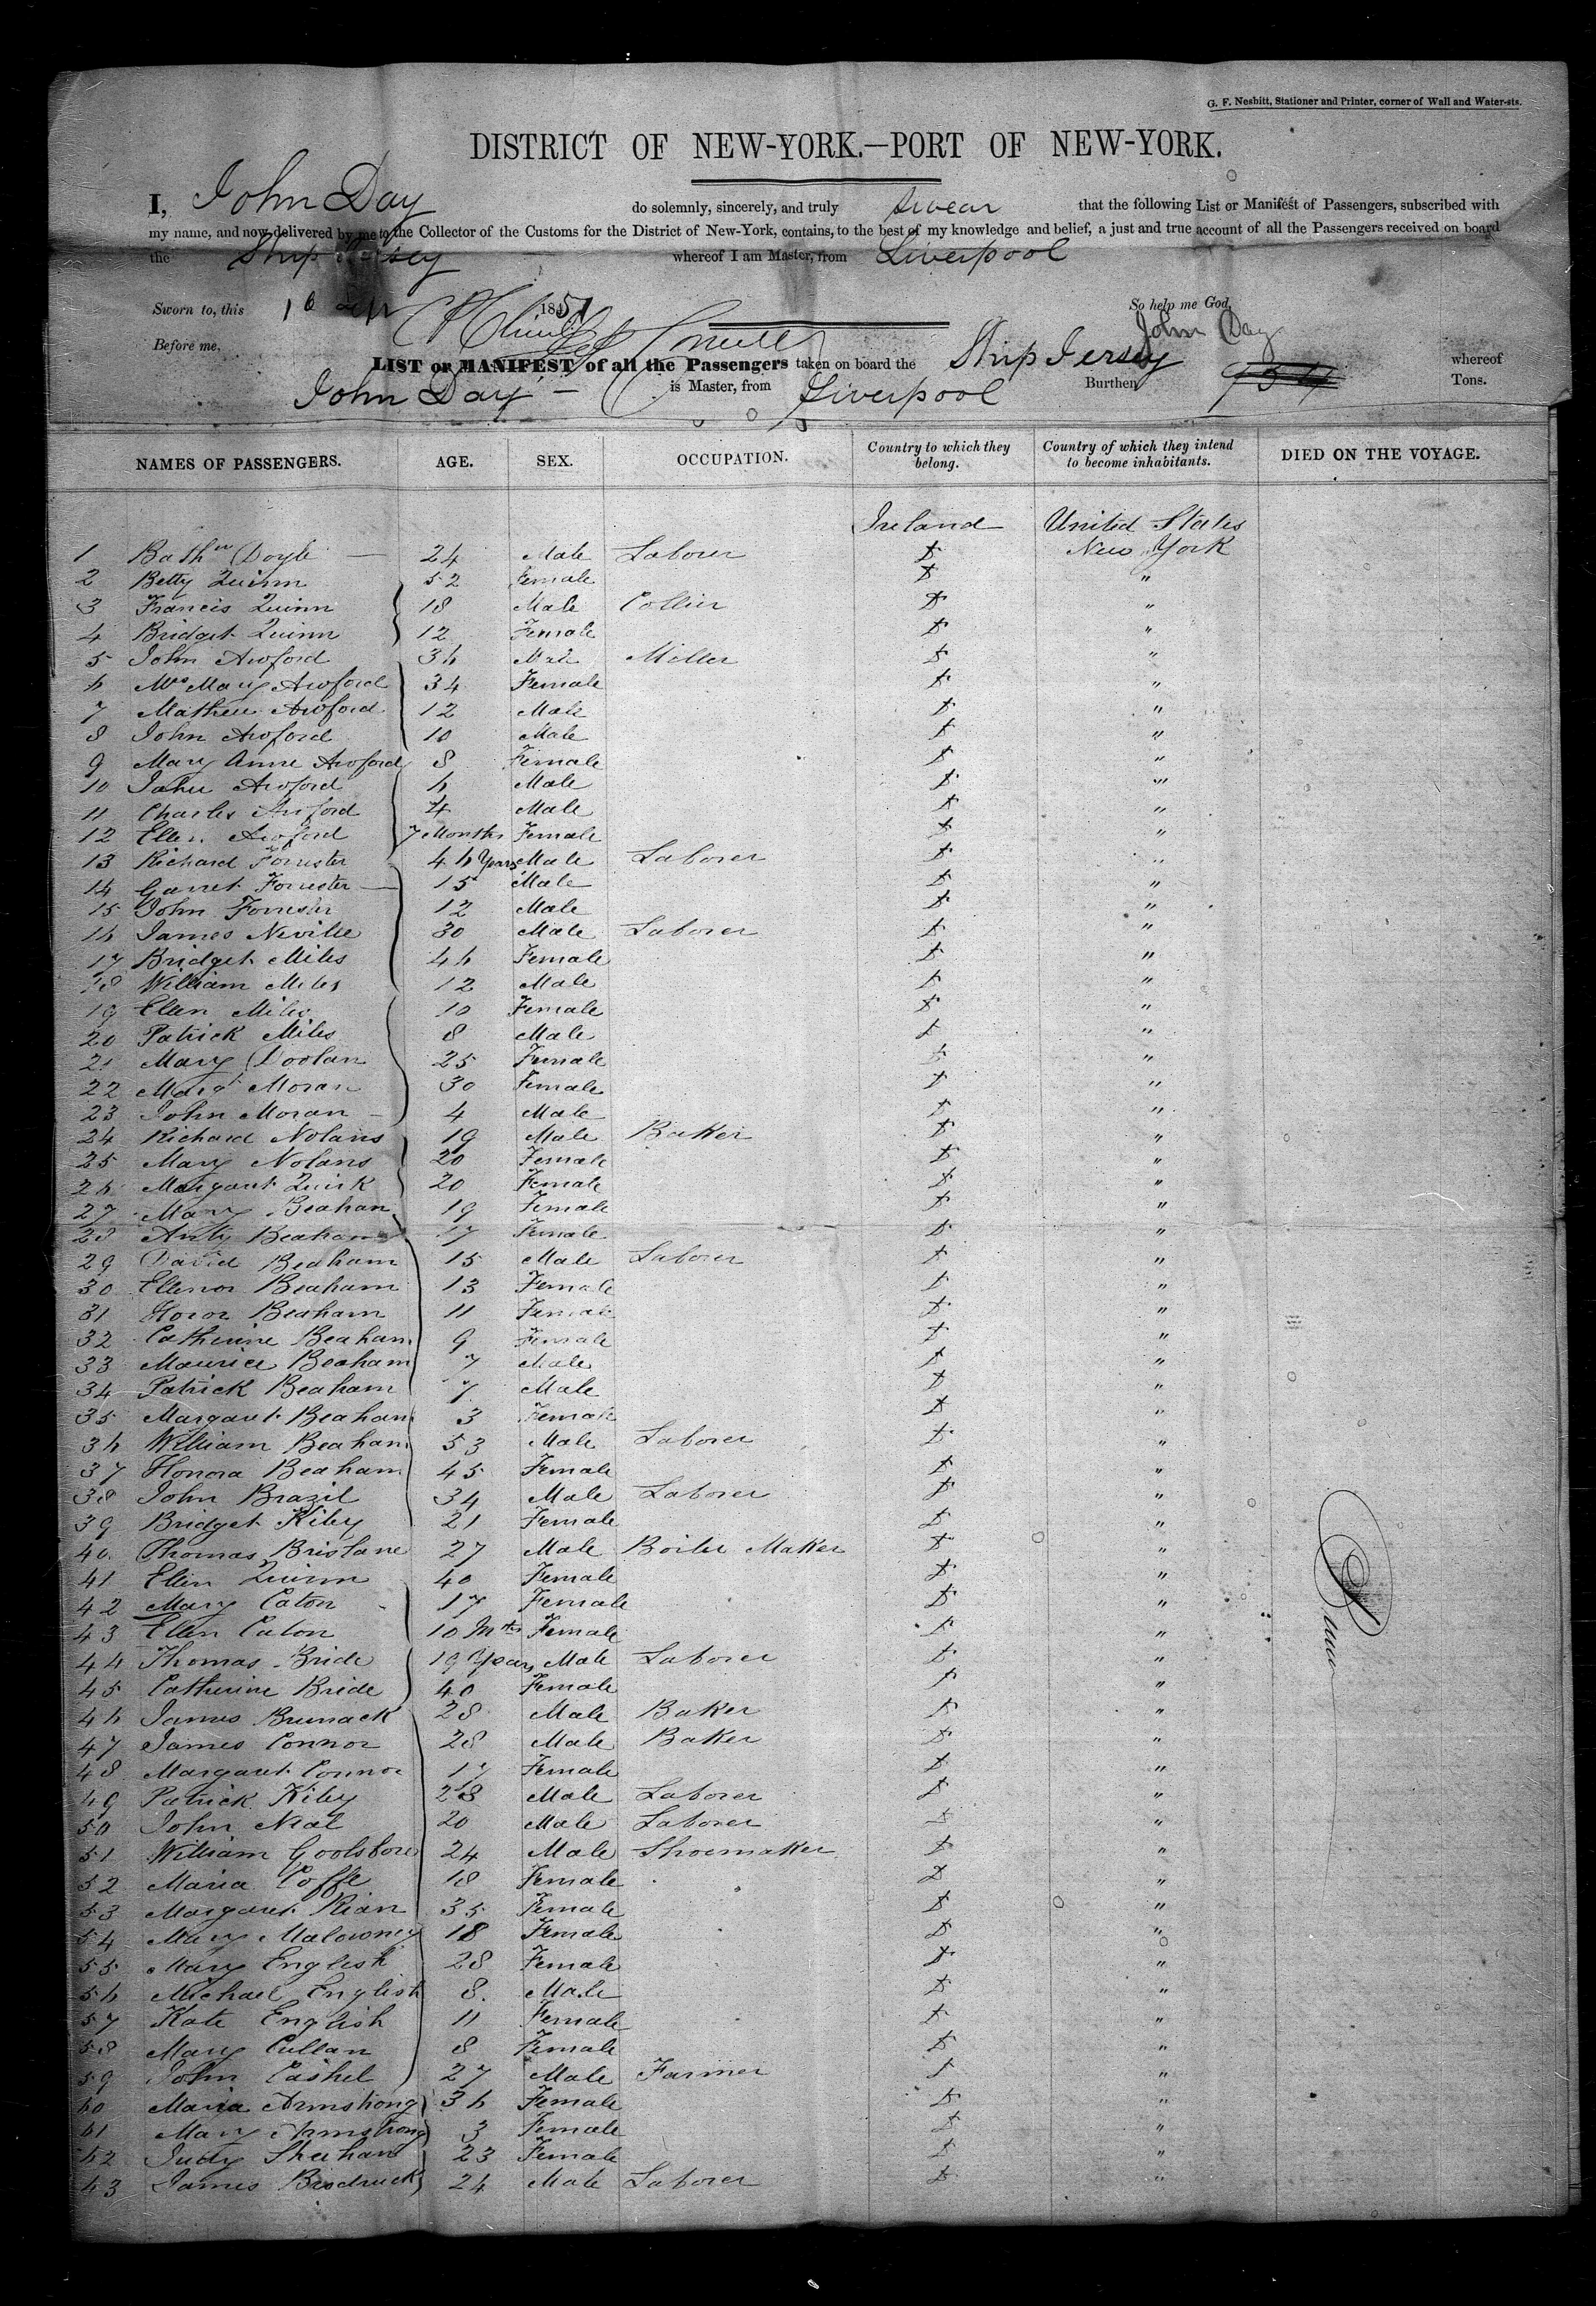 G. F. Nesbitt, Stationer and Printer, corner of Wall and Water-sts.
DISTRICT OF NEW-YORK.—PORT OF NEW-YORK.
I, John Day do solemnly, sincerely, and truly swear that the following List or Manifest of Passengers, subscribed with
my name, and now delivered by me to the Collector of the Customs for the District of New-York, contains, to the best of my knowledge and belief, a just and true account of all the Passengers received on board
the Ship Jersey whereof I am Master, from Liverpool
Sworn to, this 16 1851 So help me God,
Before me, John Day
LIST or MANIFEST of all the Passengers taken on board the Ship Jersey whereof
John Day is Master, from Liverpool Burthen Tons.
NAMES OF PASSENGERS. AGE. SEX. OCCUPATION. Country to which they belong. Country of which they intend to become inhabitants. DIED ON THE VOYAGE.
Ireland United States
1 Bathw Doyle — 24 Male Laborer D New York
2 Betty Quinn 52 Female D "
3 Francis Quinn 18 Male Collier D "
4 Bridget Quinn 12 Female D "
5 John Awford 36 Male Miller D "
6 Mrs Mary Awford 34 Female D "
7 Mathew Awford 12 Male D "
8 John Awford 10 Male D "
9 Mary Anne Awford 8 Female D "
10 Awford 6 Male D "
11 Charles Awford 4 Male D "
12 Ellen Awford 7 Months Female D "
13 Richard Forrester 46 Years Male Laborer D "
14 Garret Forrester — 15 Male D "
15 John Forrester 12 Male D "
16 James Neville 30 Male Laborer D "
17 Bridget Miles 46 Female D "
18 William Miles 12 Male D "
19 Ellen Miles 10 Female D "
20 Patrick Miles 8 Male D "
21 Mary Doolan 25 Female D "
22 Margt Moran 30 Female D "
23 John Moran — 4 Male D "
24 Richard Nolans 19 Male Baker D "
25 Mary Nolans 20 Female D "
26 Margaret Quirk 20 Female D "
27 Mary Beaham 19 Female D "
28 Beaham 17 Female D "
29 David Beaham 15 Male Laborer D "
30 Ellenor Beaham 13 Female D "
31 Honor Beaham 11 Female D "
32 Catherine Beaham 9 Female D "
33 Maurice Beaham 7 Male D "
34 Patrick Beaham 7 Male D "
35 Margaret Beaham 3 Female D "
36 William Beaham 53 Male Laborer D "
37 Honora Beaham 45 Female D "
38 John Brazil 34 Male Laborer D "
39 Bridget Kiley 21 Female D "
40 Thomas Brislane 27 Male Boiler Maker D "
41 Ellen Quinn 40 Female D "
42 Mary Caton 17 Female D "
43 Ellen Caton 10 Mths Female D "
44 Thomas Bride 19 Years Male Laborer D "
45 Catherine Bride 40 Female D "
46 James Brunack 28 Male Baker D "
47 James Connor 28 Male Baker D "
48 Margaret Connor 17 Female D "
49 Patrick Kiley 28 Male Laborer D "
50 John Neal 20 Male Laborer D "
51 William 24 Male Shoemaker D "
52 Maria Coffe 18 Female D "
53 Margaret Rian 35 Female D "
54 Mary Malowney 18 Female D "
55 Mary English 28 Female D "
56 Michael English 8 Male D "
57 Kate English 11 Female D "
58 Mary Cullan 8 Female D "
59 John Cashel 27 Male Farmer D "
60 Maria Armstrong 36 Female D "
61 Mary Armstrong 3 Female D "
62 Judy Sheehan 23 Female D "
63 James 24 Male Laborer D "